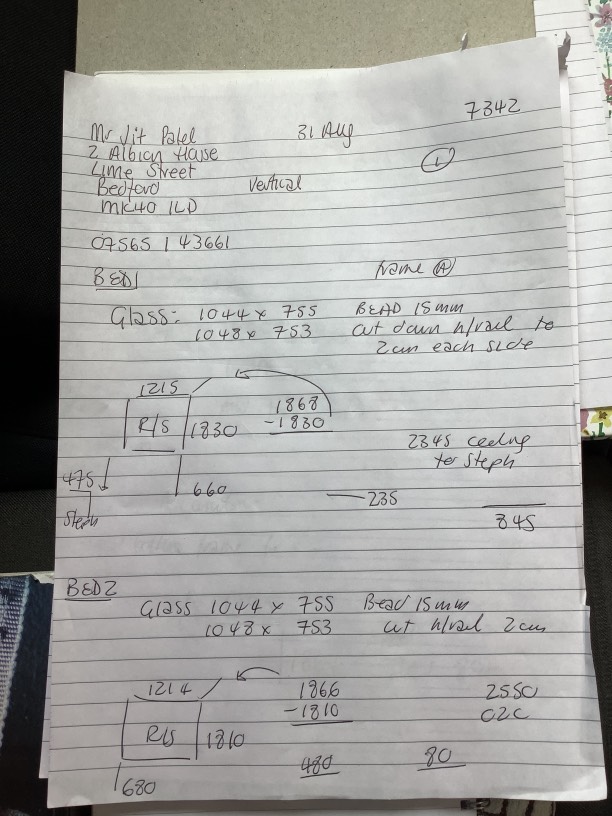 7342
Mr Jit Patel 31 Aug
2 Albion House ①
Lime Street
Bedford Vertical
MK40 1LD
07565 143661
BED1 frame Ⓐ
Glass: 1044 x 755 BEAD 15mm
1048 x 753 cut down h/rail to
2cm each side
1215
1868
R/S 1830 -1830
2345 ceiling
to Steph
475
660 235
Steph 845
BED2
Glass 1044 x 755 Bead 15mm
1048 x 753 cut h/rail 2cm
1214 1866 2550
-1810 02C
R/S 1810
480 80
680